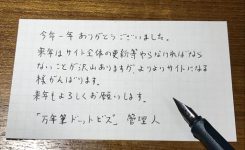 今年一年ありがとうございました。
来年はサイト全体の更新等やらなければなら
ないことが沢山ありますが、よりよいサイトになる
様がんばります。
来年もよろしくお願いします。
「万年筆ドットビズ」 管理人